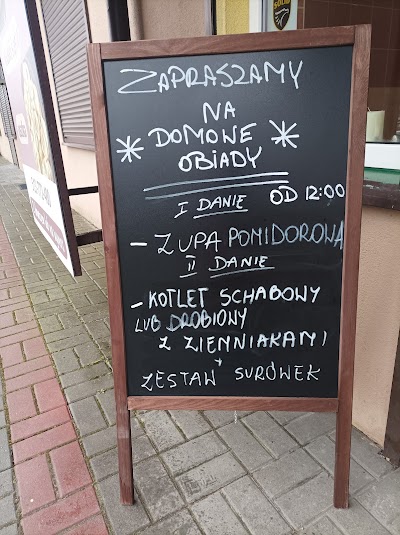 ZAPRASZAMY
NA
* DOMOWE *
OBIADY
I DANIE OD 12:00
- ZUPA POMIDOROWA
II DANIE
- KOTLET SCHABOWY
LUB DROBIOWY
Z ZIEMNIAKAMI
+
ZESTAW SURÓWEK